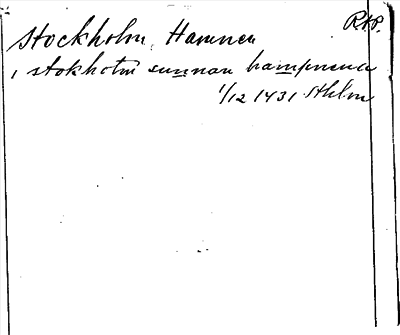 RAP.
Stockholm, Hamnen
i stokholm sunnan hampnena
1/12 1431 Sthlm